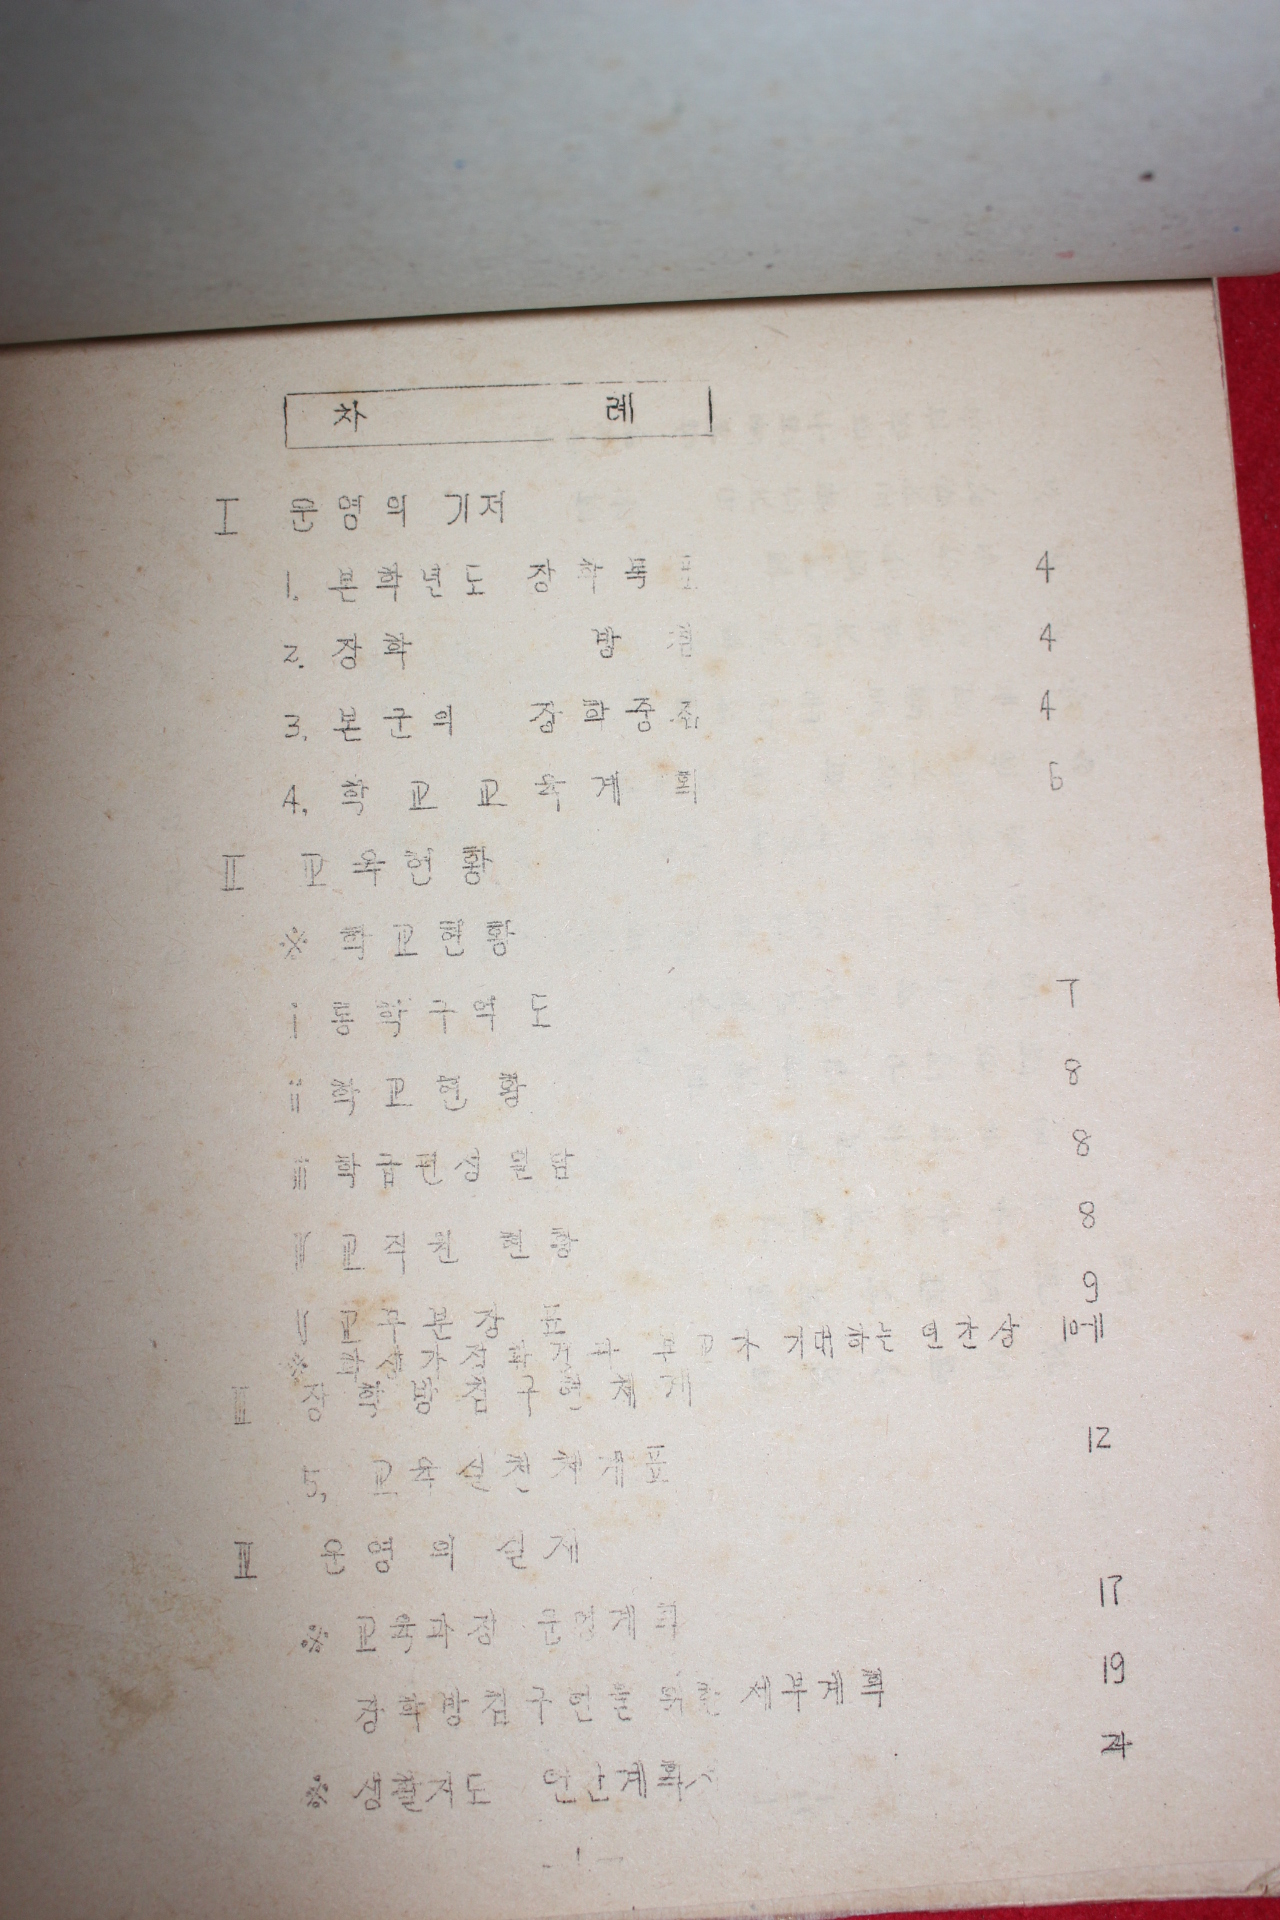 차 례
Ⅰ 운영의 기저
1. 본학년도 장학목표 4
2. 장학 방침 4
3. 본군의 장학중점 4
4. 학교교육계획 6
Ⅱ 교육현황
※ 학교현황
ⅰ 통학구역도 7
ⅱ 학교현황 8
ⅲ 학급편성 8
ⅳ 교직원 현황 8
ⅴ 교무분장표 9
※ 기대하는 인간상
Ⅲ 장학방침구현체계
5. 교육실천체계표 12
Ⅲ 운영의 실제
※ 교육과정 운영계획 17
장학방침구현을 위한 세부계획 19
※ 생활지도 연간계획
- 1 -